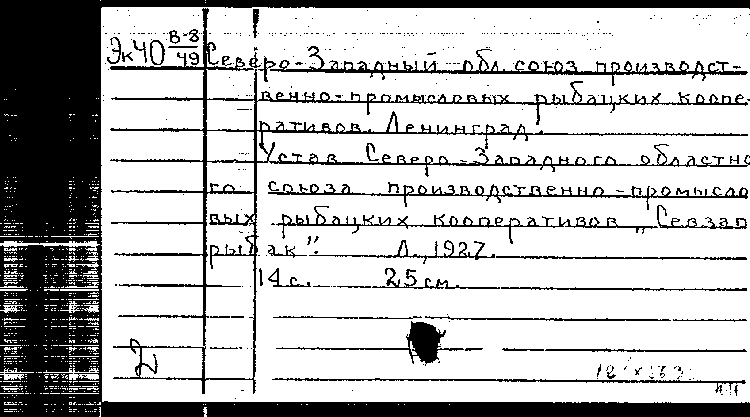 Эк40 В-8/49 Северо-Западный обл. союз производст-
венно-промысловых рыбацких коопе-
ративов. Ленинград.
Устав Северо-Западного областно
го союза производственно-промысло
вых рыбацких кооперативов „Севзап
рыбак". Л., 1927.
14 с. 25 см.